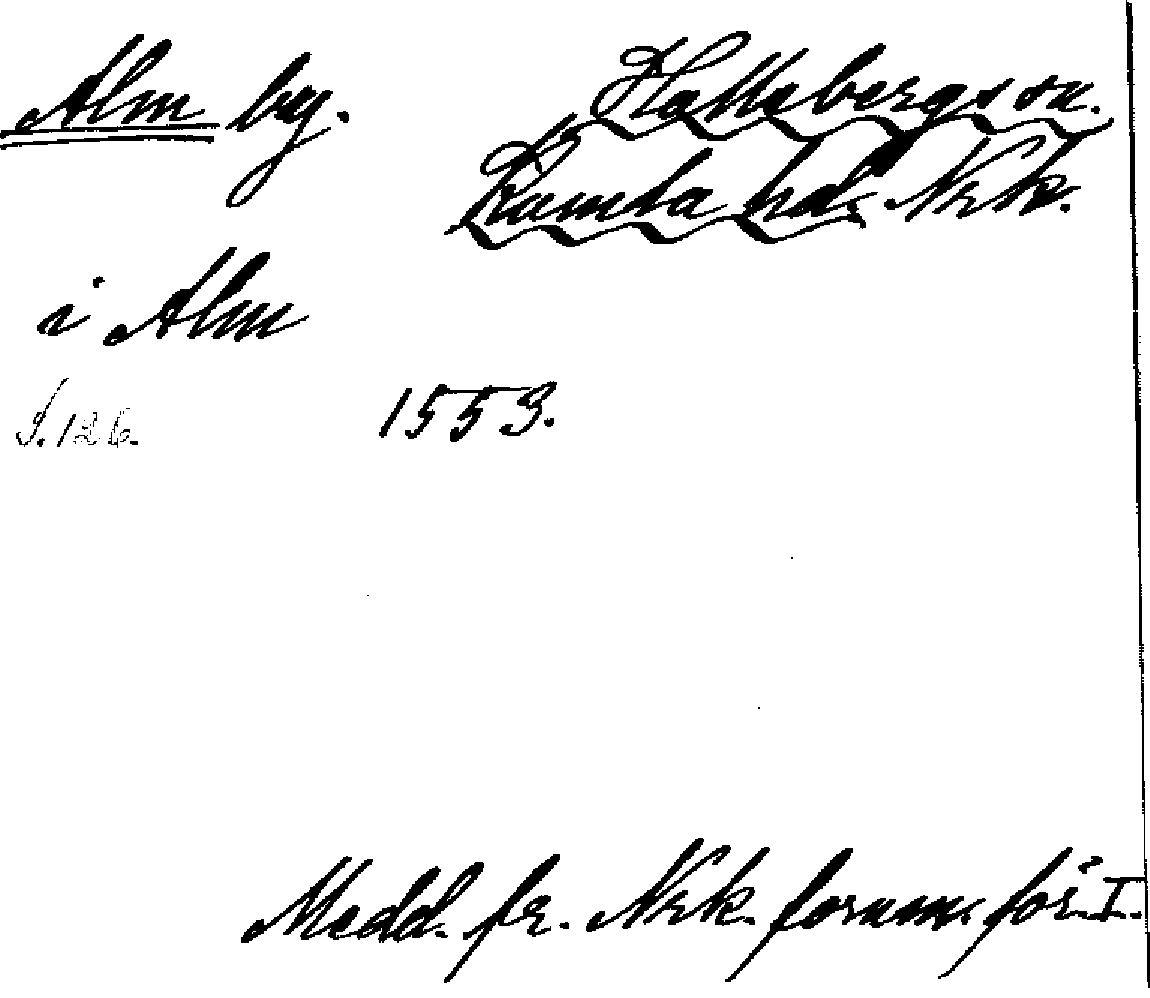 Alm by. Hallsbergs sn.
Kumla hd. Nrk.
i Alm
S. 126. 1553.
Medd. fr. Nrk. fornm. för. I.